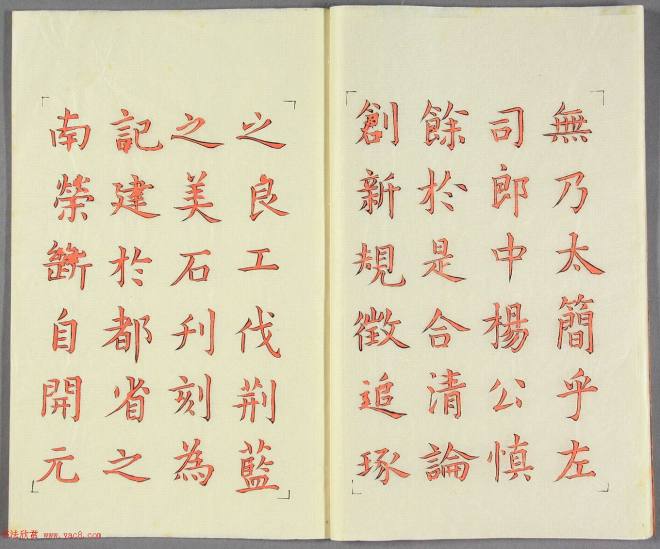 無乃太簡乎左
司郎中楊公慎
餘於是合清論
創新規徵追琢
之良工伐荆藍
之美石刊刻為
記建於都省之
南榮斷自開元
书法欣赏 www.yac8.com